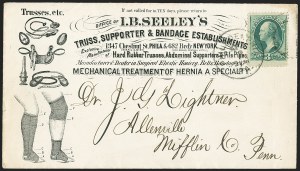 Trusses, etc.
If not called for in TEN days, please return to
OFFICE OF I.B. SEELEY'S
TRUSS, SUPPORTER & BANDAGE ESTABLISHMENTS
1347 Chestnut St. PHILA & 682 Bdwy NEW YORK.
Hard Rubber Trusses, Abdominal Supporters & Pile Pipes
MECHANICAL TREATMENT OF HERNIA A SPECIALTY.
Dr. J G Lightner
Allenville
Mifflin Co
Penn.